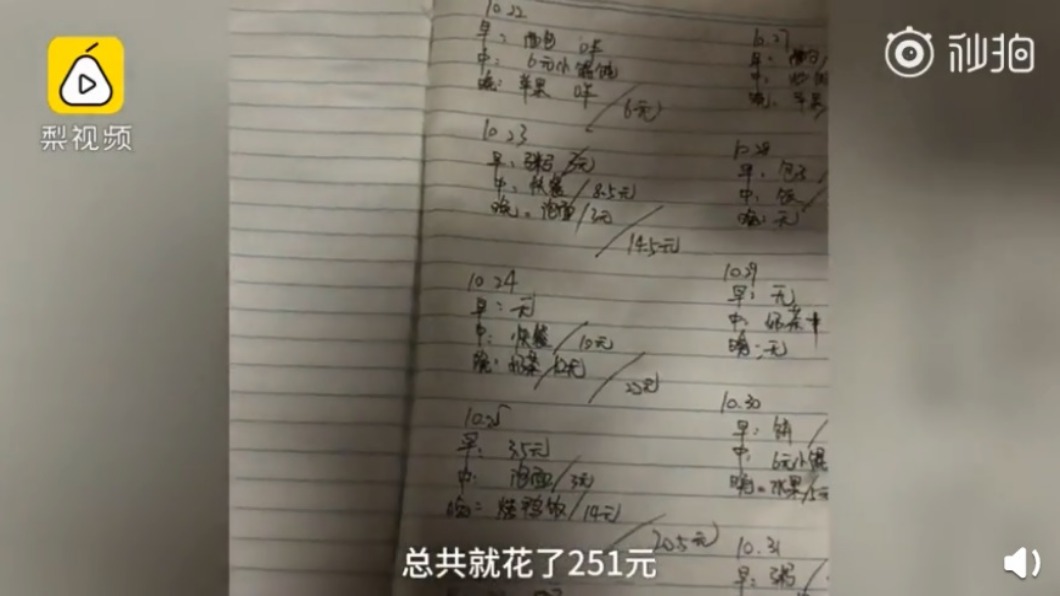 梨视频
秒拍
10.22
早:面包
中:6元小馄饨
晚:苹果
6元
10.23
早:粥 3元
中:快餐/8.5元
晚:泡面/3元
14.5元
10.24
早:无
中:快餐/10元
晚:奶茶/12元
22元
10.25
早:3.5元
中:泡面/3元
晚:烧鸭饭/14元
20.5元
10.27
早:
中:
晚:苹果
10.28
早:包子
中:饭/
晚:无
10.29
早:无
中:奶茶
晚:无
10.30
早:饼/
中:6元小馄
晚:水果/5元
10.31
早:粥/
总共就花了251元